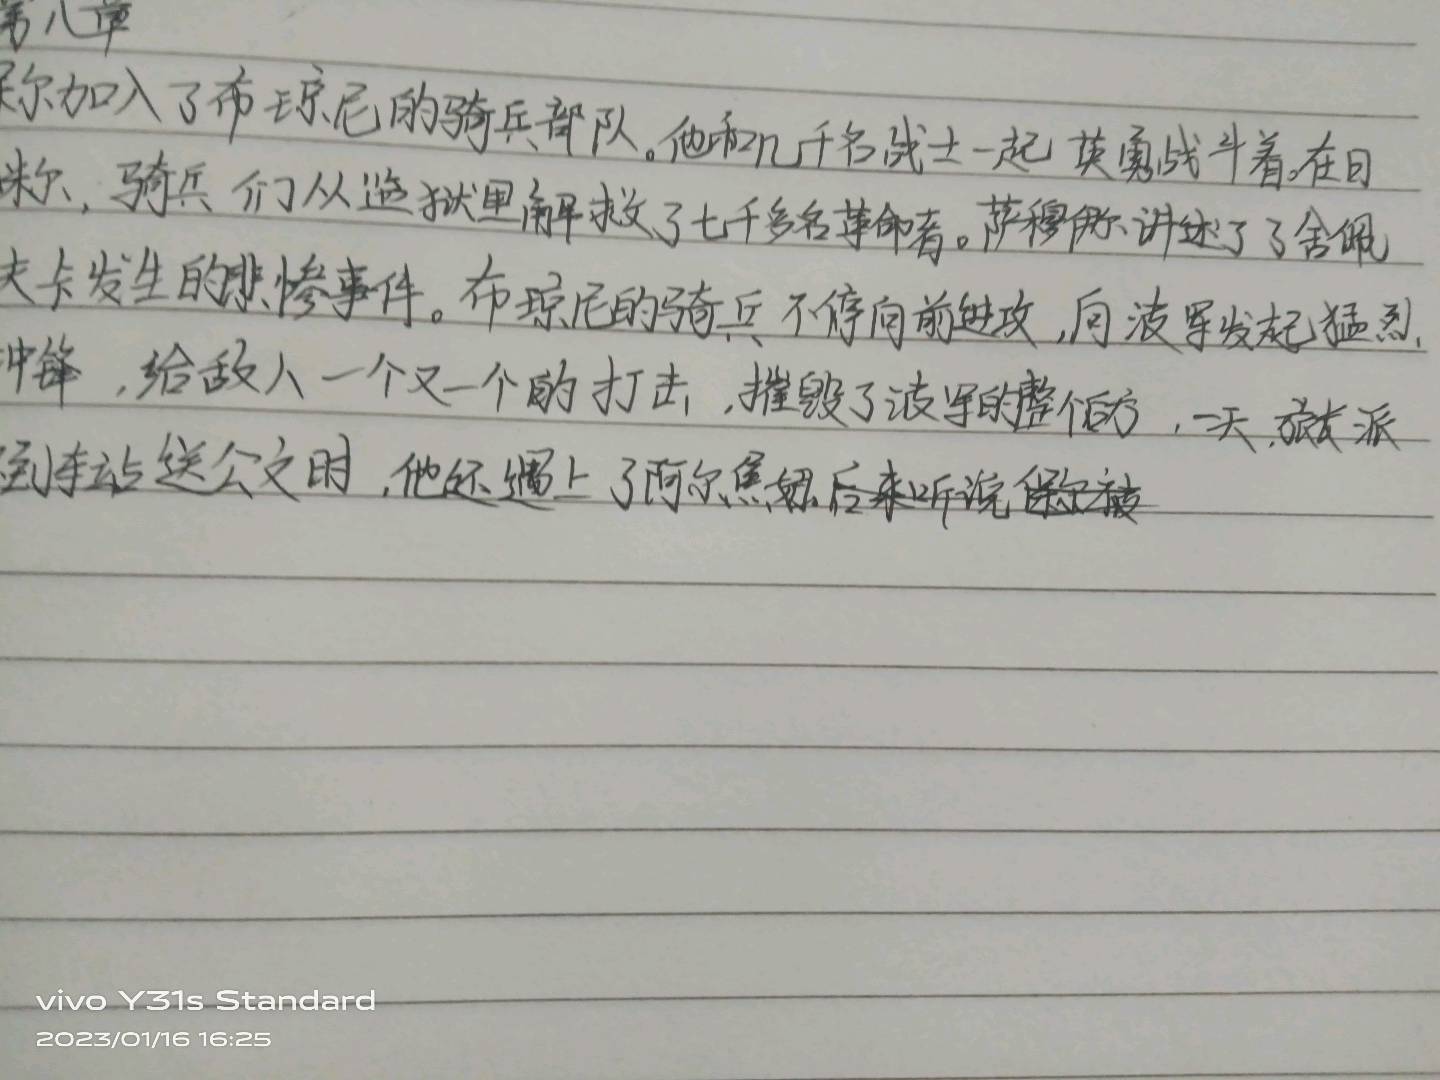 第八章
保尔加入了布琼尼的骑兵部队。他和几千名战士一起英勇战斗着。在日
米尔，骑兵们从监狱里解救了七千多名革命者。萨穆伊尔讲述了了舍佩
夫卡发生的悲惨事件。布琼尼的骑兵不停向前进攻，向波军发起猛烈
冲锋，给敌人一个又一个的打击，摧毁了波军的整个后方，一天，被派
到车站送公文时，他还遇上了阿尔焦姆。后来听说保尔被
vivo Y31s Standard
2023/01/16 16:25